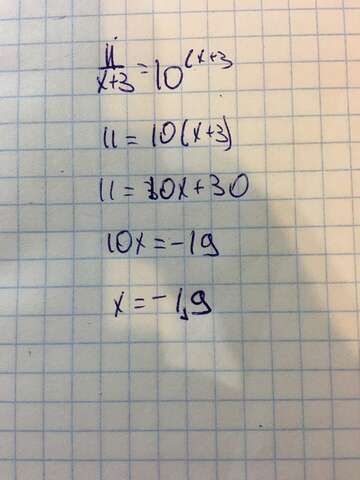 11/x+3 = 10 (x+3
11 = 10(x+3)
11 = 10x+30
10x = -19
x = -1,9